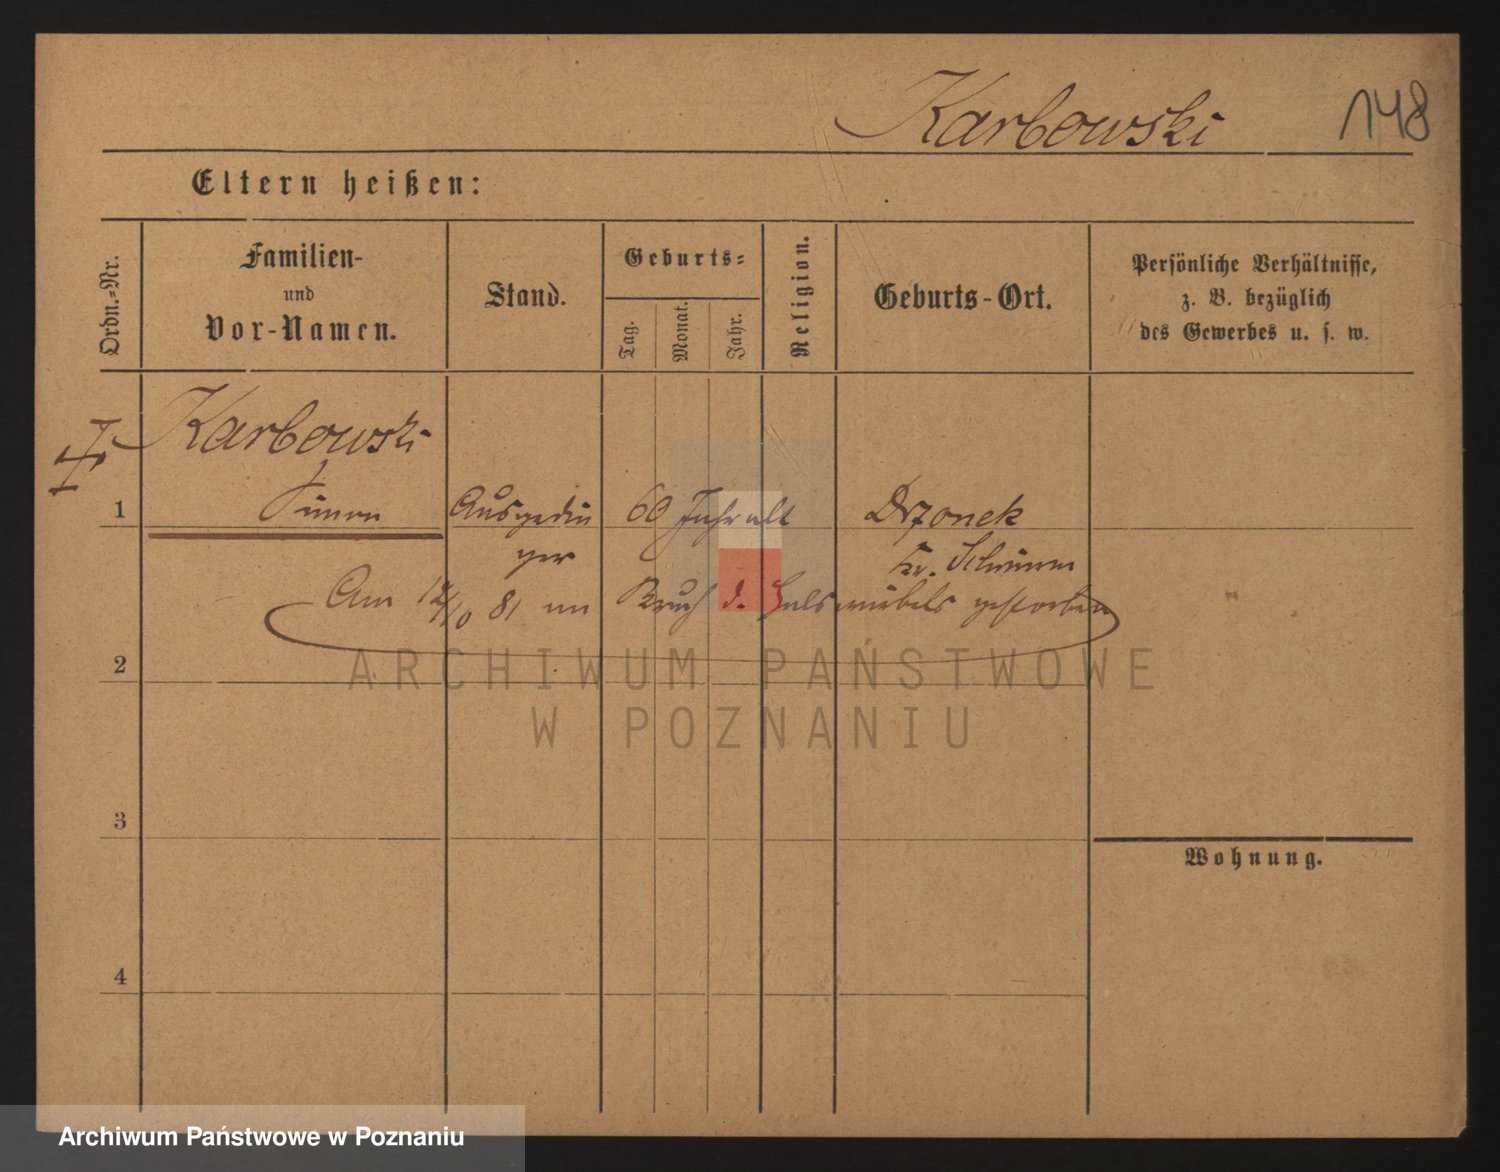 Karbowski
148
Eltern heißen:
Ordn.-Nr.
Familien-
und
Vor-Namen.
Stand.
Geburts-
Tag.
Monat.
Jahr.
Religion.
Geburts-Ort.
Persönliche Verhältnisse,
z. B. bezüglich
des Gewerbes u. s. w.
Karbowski
1 Simon Ausgedin 60 Jahr alt Drzonek
ger Kr. Schrimm
Am 12/10 81 am Bruch d. Halswirbels gestorben
2
3
4
Wohnung.
ARCHIWUM PAŃSTWOWE
W POZNANIU
Archiwum Państwowe w Poznaniu